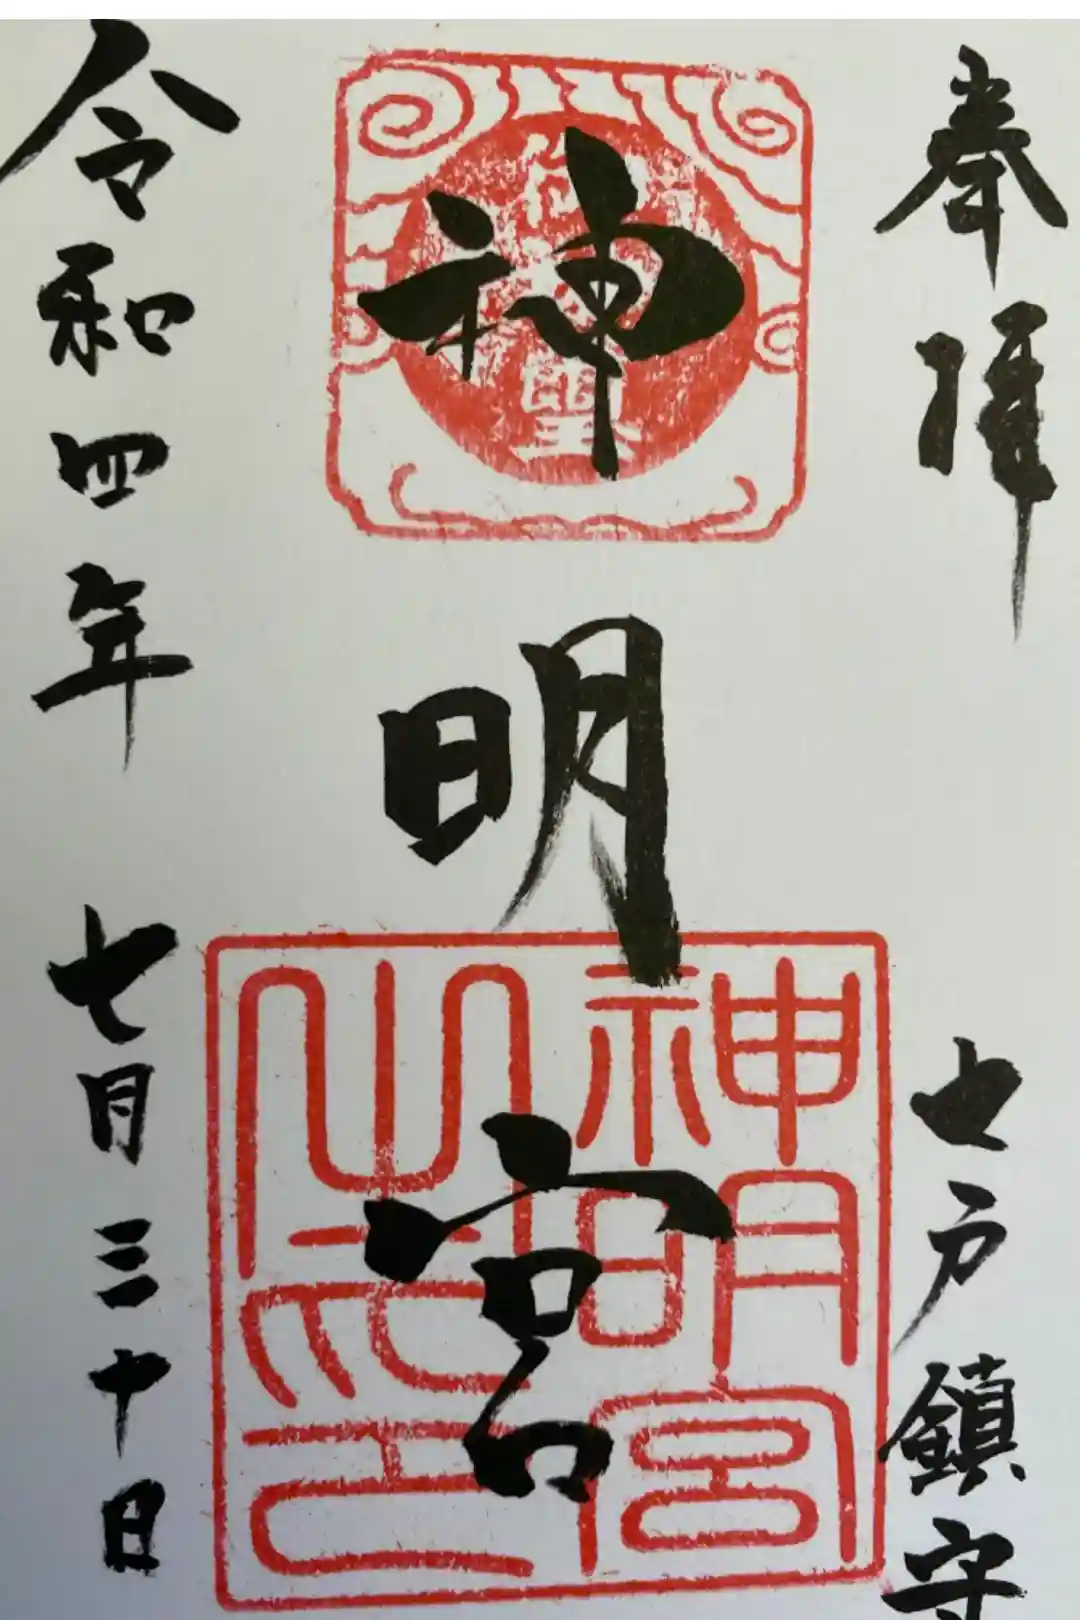 奉拝
七戸鎮守
神明宮
神明宮之印
令和四年七月三十日